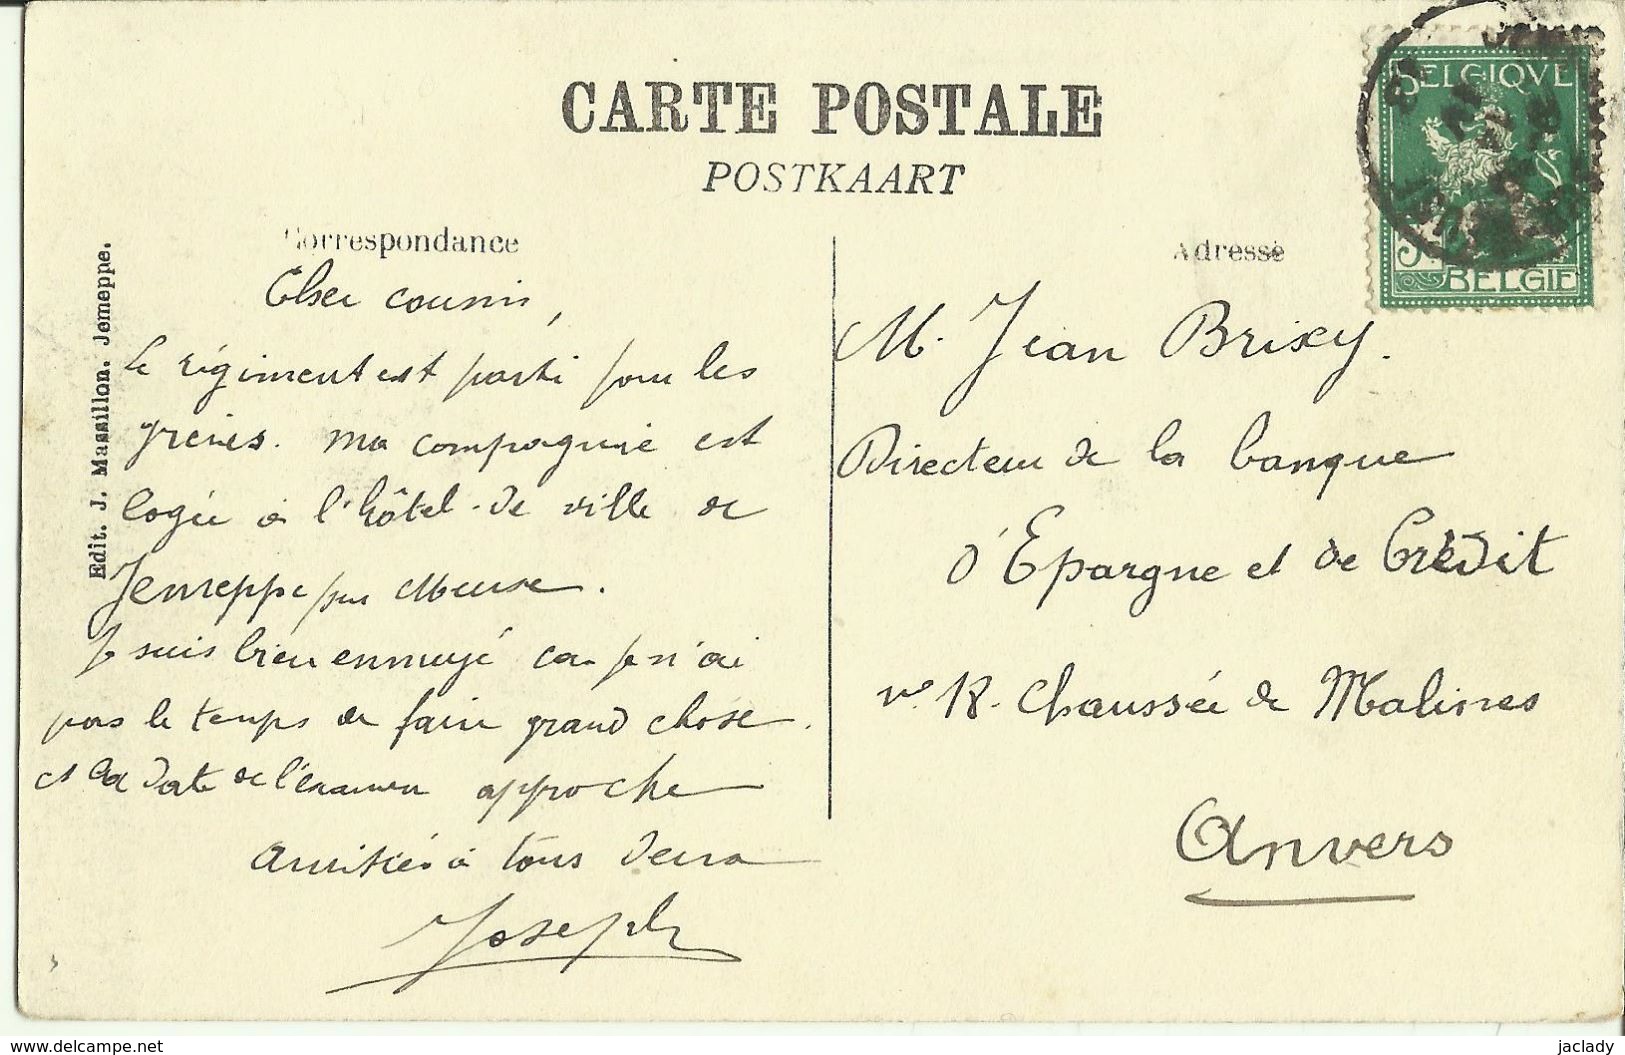 CARTE POSTALE
POSTKAART
Correspondance
Adresse
BELGIQVE
BELGIE
Edit. J. Massillon. Jemeppe.
Cher cousin,
Le régiment est parti pour les
grèves. Ma compagnie est
logée à l'hôtel-de ville de
Jemeppe sur Meuse.
Je suis bien ennuyé car je n'ai
pas le temps de faire grand chose.
et la date de l'examen approche
Amitiés à tous deux
Joseph
M. Jean Brixy.
Directeur de la banque
d'Epargne et de Crédit
n° 18. Chaussée de Malines
Anvers
www.delcampe.net
jaclady